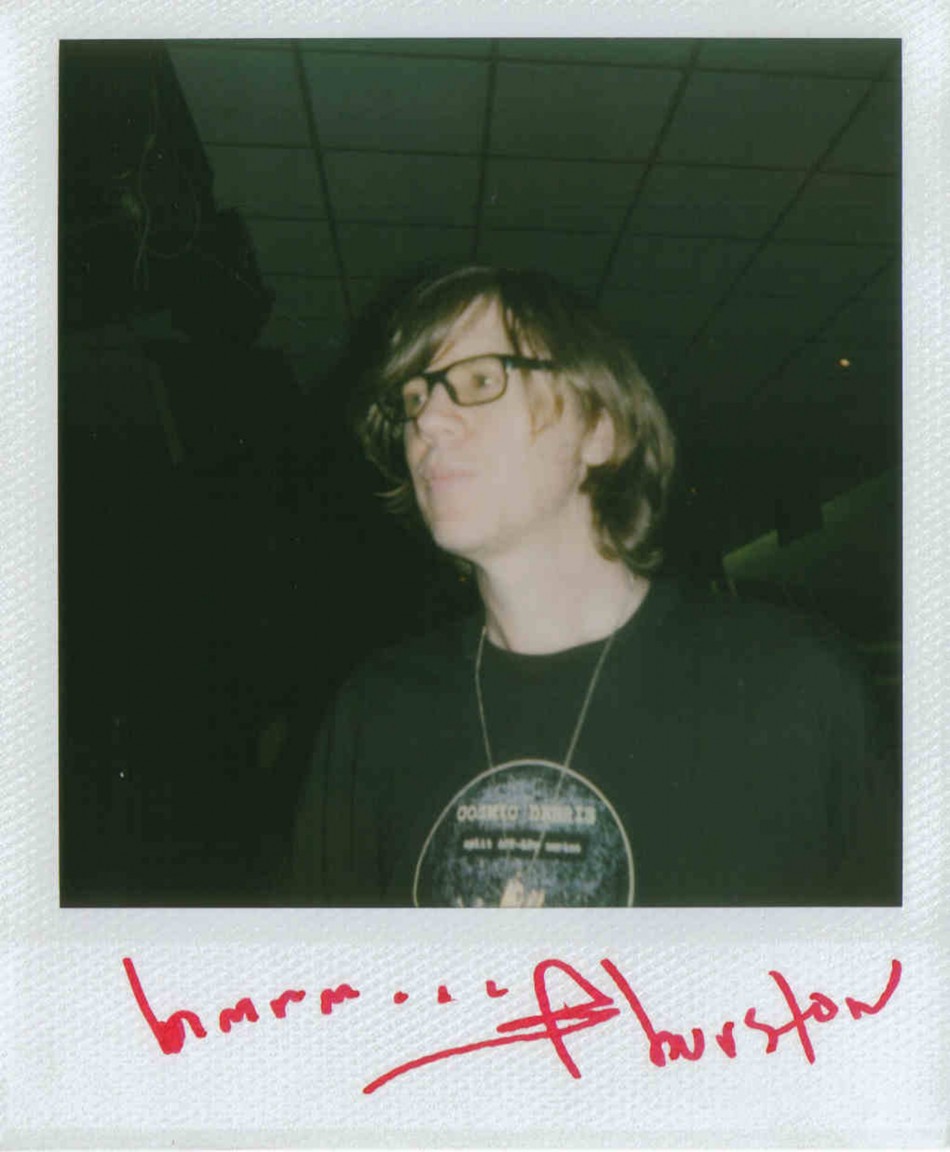 COSMIC DEBRIS
split off-the series
hmmm... Thurston